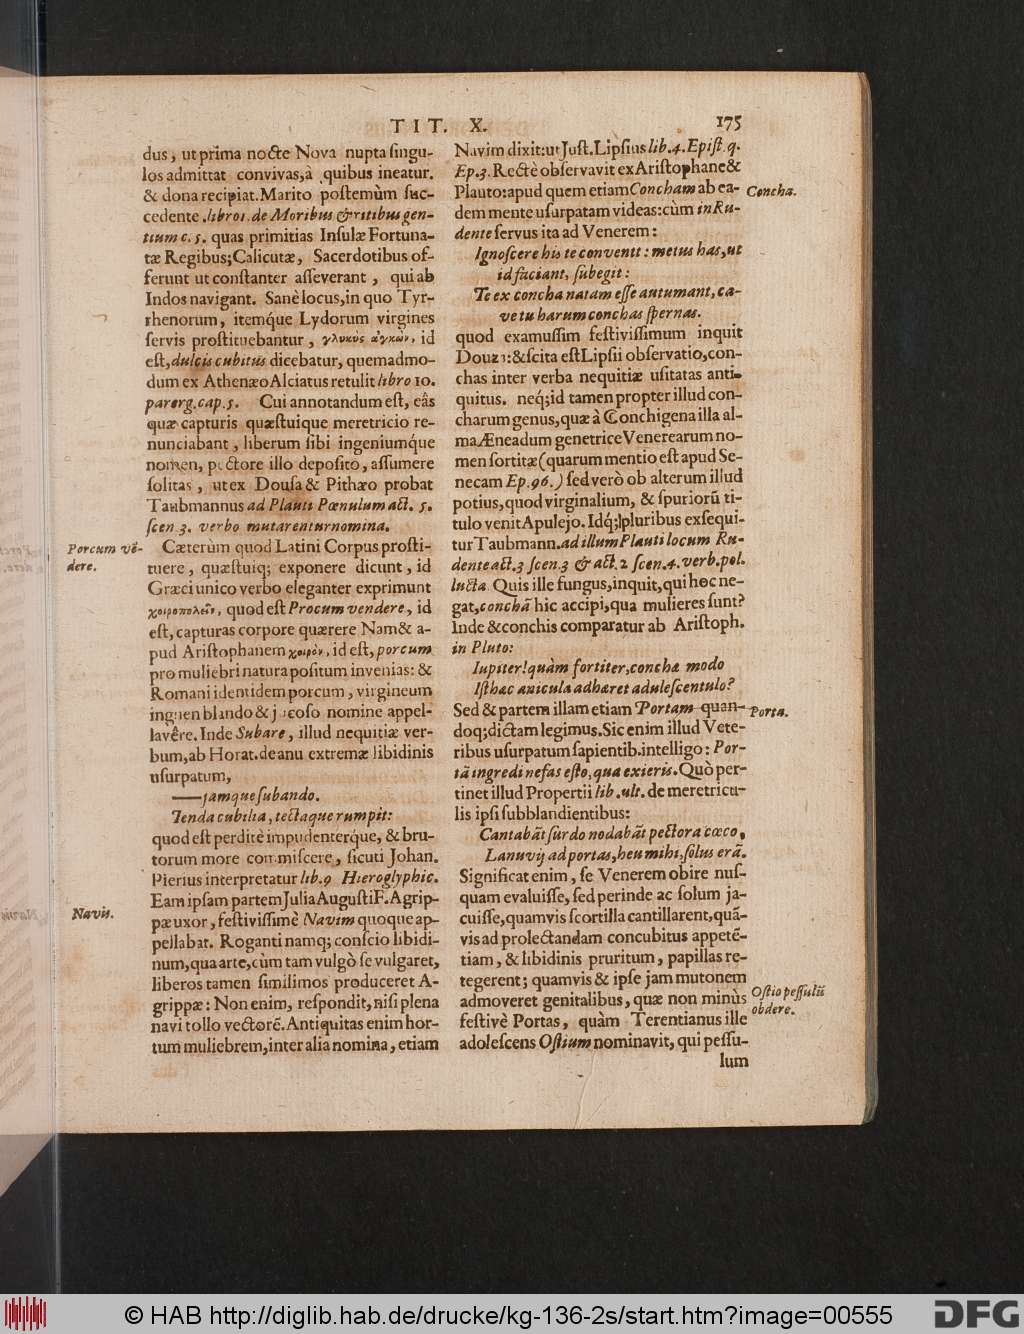 TIT. X. 175
dus, ut prima nocte Nova nupta singu-
los admittat convivas, à quibus ineatur.
& dona recipiat. Marito postemùm suc-
cedente . libro 1. de Moribus & ritibus gen-
tium c. 5. quas primitias Insulæ Fortuna-
tæ Regibus; Calicutæ, Sacerdotibus of-
ferunt ut constanter asseverant, qui ab
Indos navigant. Sanè locus, in quo Tyr-
rhenorum, itemq́ue Lydorum virgines
servis prostituebantur, γλυκὺς ἀγκὼν, id
est, dulcis cubitus dicebatur, quemadmo-
dum ex Athenæo Alciatus retulit libro 10.
parerg. cap. 5. Cui annotandum est, eâs
quæ capturis quæstuique meretricio re-
nunciabant, liberum sibi ingeniumq́ue
nomen, pectore illo deposito, assumere
solitas, ut ex Dousa & Pithæo probat
Taubmannus ad Plauti Pœnulum act. 5.
scen 3. verbo mutarentur nomina.
Porcum vē-
dere.
Cæterùm quod Latini Corpus prosti-
tuere, quæstuiq; exponere dicunt, id
Græci unico verbo eleganter exprimunt
χοιροπολεῖν, quod est Procum vendere, id
est, capturas corpore quærere Nam & a-
pud Aristophanem χοιρὸν, id est, porcum
pro muliebri natura positum invenias: &
Romani identidem porcum, virgineum
inguen blando & jocoso nomine appel-
lavêre. Inde Subare, illud nequitiæ ver-
bum, ab Horat. de anu extremæ libidinis
usurpatum,
—— jamque subando.
Tenda cubilia, tectaque rumpit:
quod est perditè impudenterq́ue, & bru-
torum more commiscere, sicuti Johan.
Pierius interpretatur lib. 9 Hieroglyphic.
Navis.
Eam ipsam partem Julia Augusti F. Agrip-
pæ uxor, festivissimè Navim quoque ap-
pellabat. Roganti namq; conscio libidi-
num, qua arte, cùm tam vulgò se vulgaret,
liberos tamen similimos produceret A-
grippæ: Non enim, respondit, nisi plena
navi tollo vectorē. Antiquitas enim hor-
tum muliebrem, inter alia nomina, etiam
Navim dixit: ut Just. Lipsius lib. 4. Epist. q.
Ep. 3. Rectè observavit ex Aristophane &
Plauto: apud quem etiam Concham ab ea-
Concha.
dem mente usurpatam videas: cùm in Ru-
dente servus ita ad Venerem:
Ignoscere his te convenit: metus has, ut
id faciant, subegit:
Te ex concha natam esse autumant, ca-
ve tu harum conchas spernas.
quod examussim festivissimum inquit
Douza: & scita est Lipsii observatio, con-
chas inter verba nequitiæ usitatas anti-
quitus. neq́; id tamen propter illud con-
charum genus, quæ à Conchigena illa al-
ma Æneadum genetrice Venerearum no-
men sortitæ (quarum mentio est apud Se-
necam Ep. 96.) sed verò ob alterum illud
potius, quod virginalium, & spuriorū ti-
tulo venit Apulejo. Idq́; pluribus exsequi-
tur Taubmann. ad illum Plauti locum Ru-
dente act. 3 scen. 3 & act. 2 scen. 4. verb. pol.
lucta Quis ille fungus, inquit, qui hoc ne-
gat, conchā hic accipi, qua mulieres sunt?
Inde & conchis comparatur ab Aristoph.
in Pluto:
Iupiter! quàm fortiter, concha modo
Isthac anicula adhæret adulescentulo?
Sed & partem illam etiam Portam quan-
Porta.
doq; dictam legimus. Sic enim illud Vete-
ribus usurpatum sapientib. intelligo: Por-
tā ingredi nefas esto, qua exieris. Quò per-
tinet illud Propertii lib. ult. de meretricu-
lis ipsi subblandientibus:
Cantabāt surdo nodabāt pectora cœco,
Lanuvij ad portas, heu mihi, solus erā.
Significat enim, se Venerem obire nus-
quam evaluisse, sed perinde ac solum ja-
cuisse, quamvis scortilla cantillarent, quā-
vis ad prolectandam concubitus appetē-
tiam, & libidinis pruritum, papillas re-
tegerent; quamvis & ipse jam mutonem
admoveret genitalibus, quæ non minùs
Ostio pessulū
obdere.
festivè Portas, quàm Terentianus ille
adolescens Ostium nominavit, qui pessu-
lum
© HAB http://diglib.hab.de/drucke/kg-136-2s/start.htm?image=00555
DFG